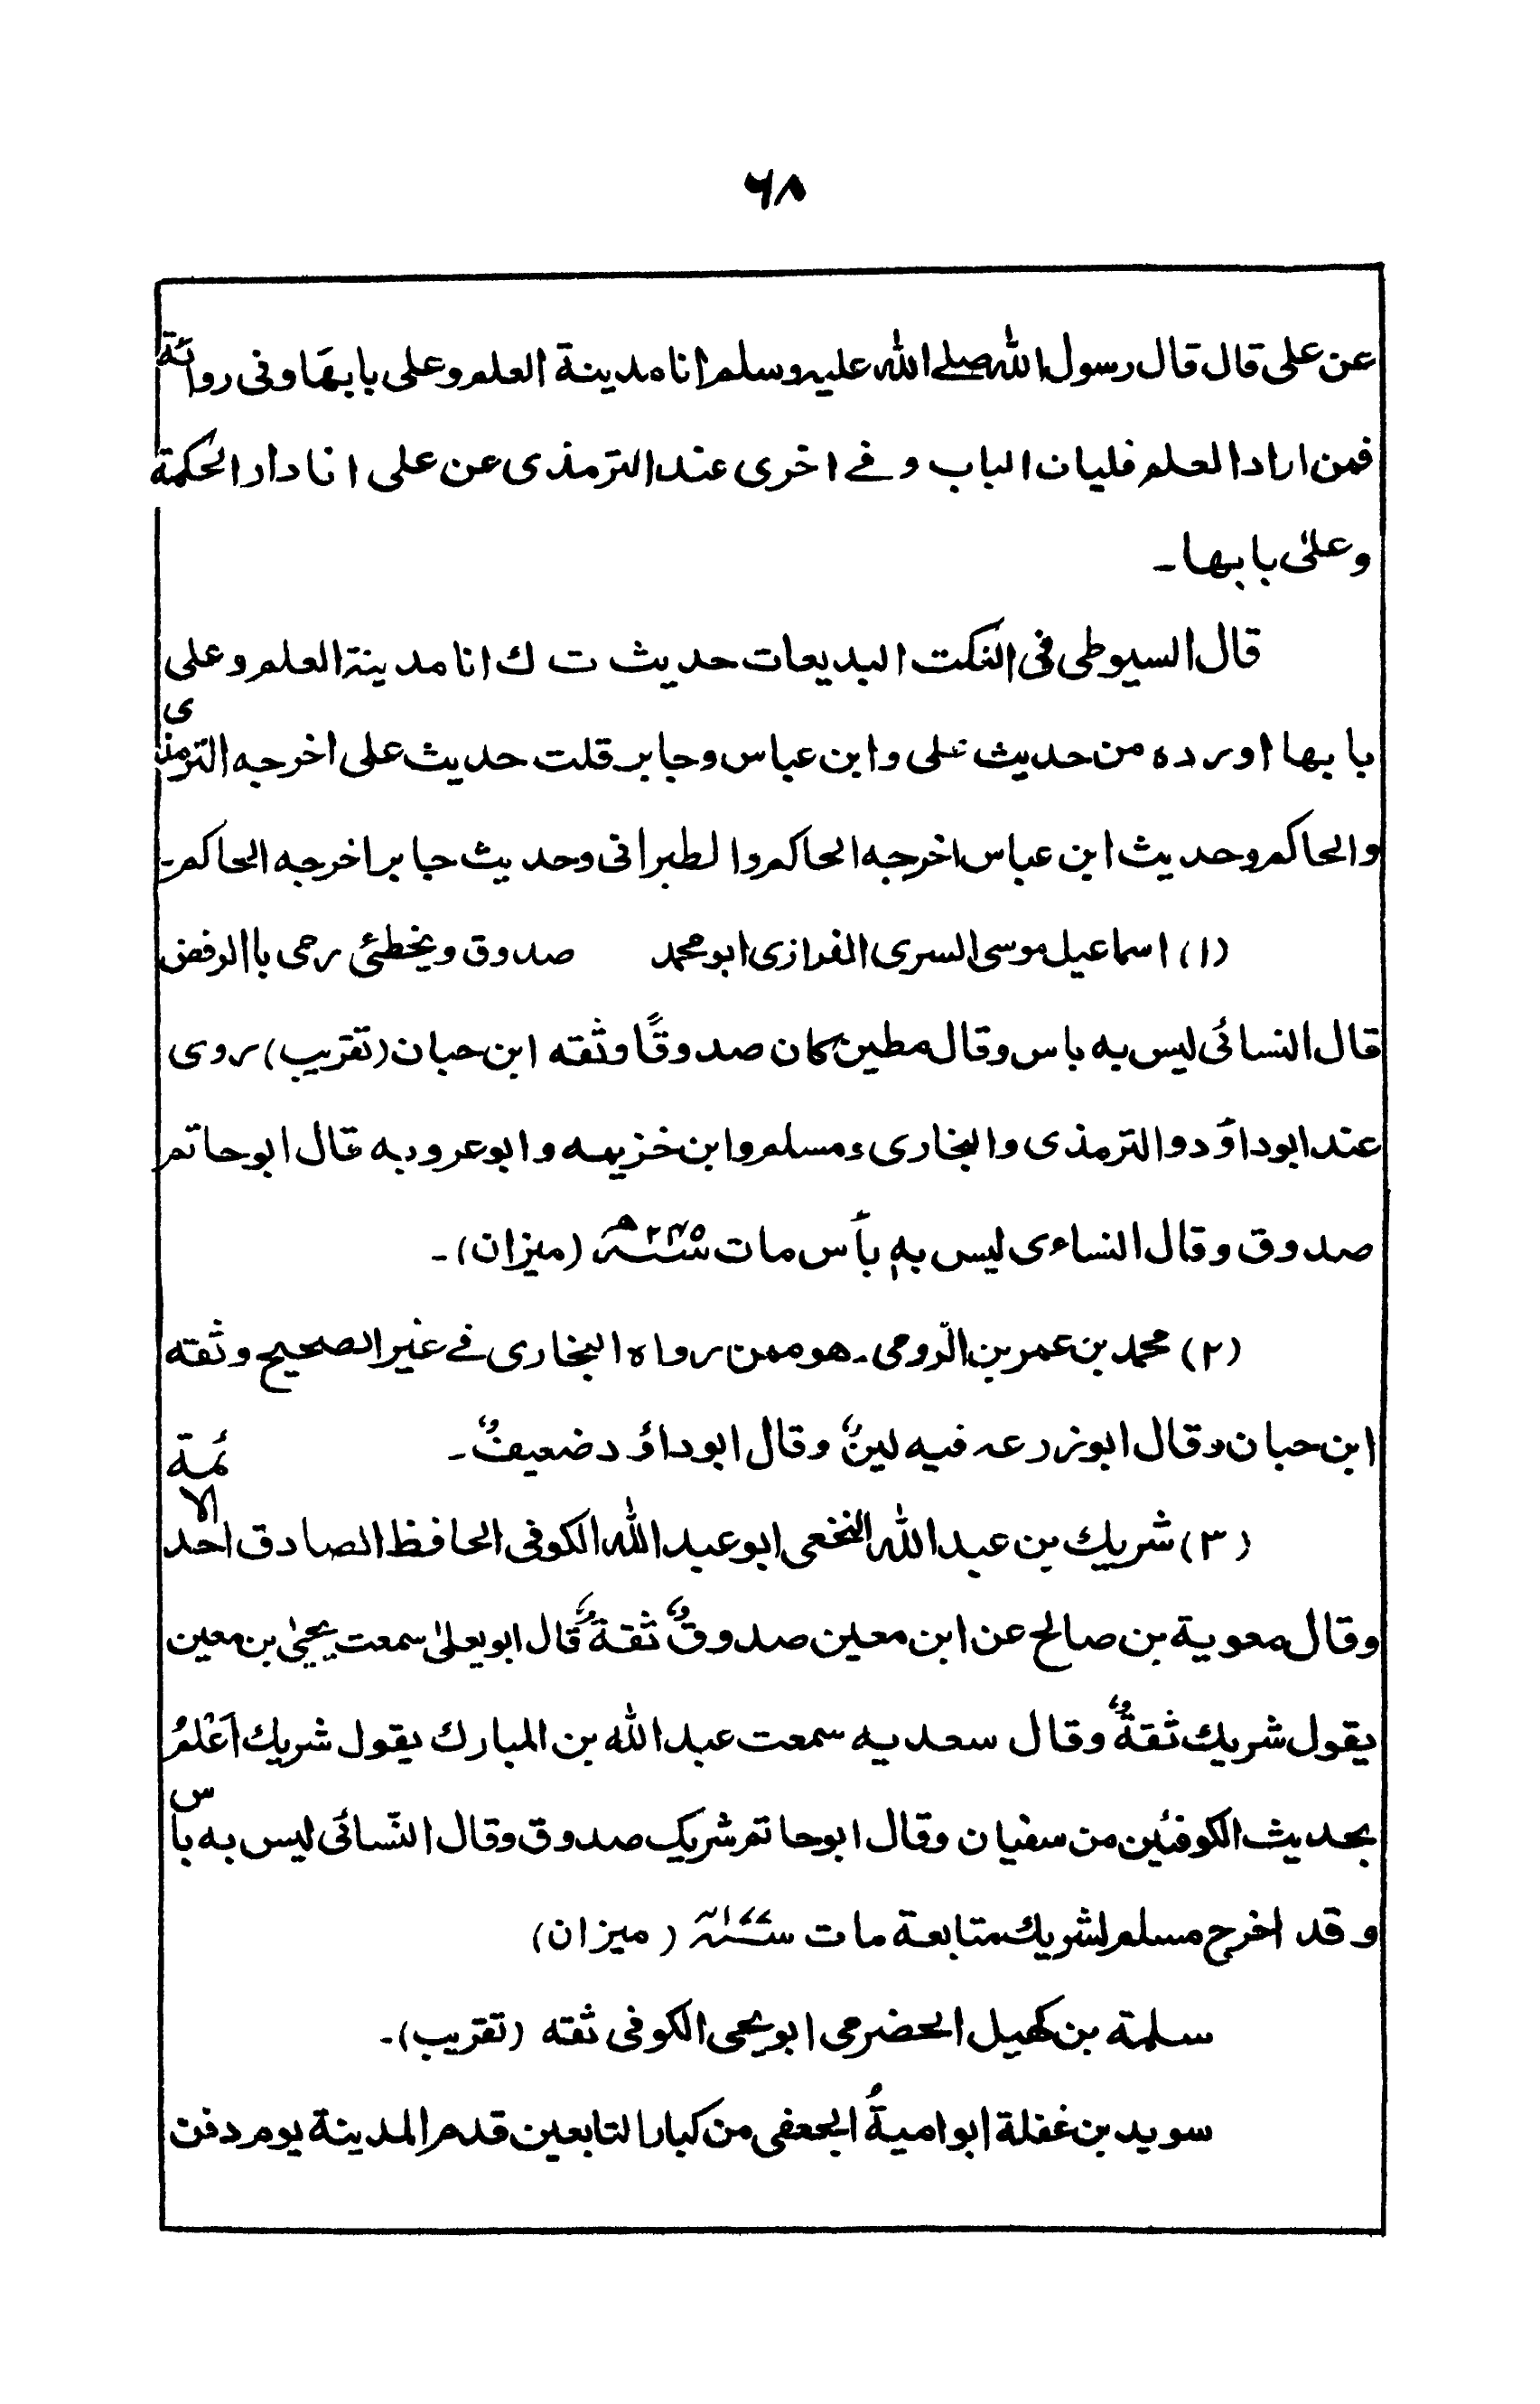 ۶۸
عن علی قال قال رسول الله صلے الله علیه وسلم انا مدینة العلم وعلی بابهَا وفی روایَة
فمن اراد العلم فلیات الباب و فے اخری عند الترمذی عن علی انا دار الحکمة
وعلیٰ بابها۔
قال السیوطی فی النکت البدیعات حدیث ت ك انا مدینة العلم وعلی
بابها اورده من حدیث علی وابن عباس وجابر قلت حدیث علی اخرجه الترمذی
والحاکم وحدیث ابن عباس اخرجه الحاکم والطبرانی وحدیث جابر اخرجه الحاکم۔
(۱) اسماعیل موسی السری الفرازی ابو محمد صدوق ویخطئ رمی باالرفض
قال النسائی لیس به باس وقال مطین کان صدوقًا وثقه ابن حبان (تقریب) روی
عند ابوداؤد والترمذی والبخاری ومسلم وابن خزیمه وابوعروبه قال ابوحاتم
صدوق وقال النساءی لیس بهٖ بأس مات ۲۴۵ھ (میزان)۔
(۲) محمد بن عمر بن الرّومی۔ هو ممن رواه البخاری فے غیر الصحیح وثقه
ابن حبان وقال ابوزرعه فیه لینٌ وقال ابوداؤد ضعیفٌ۔
(۳) شریك بن عبد الله النخعی ابو عبد الله الکوفی الحافظ الصادق احد الائمة
وقال معویة بن صالح عن ابن معین صدوقٌ ثقةٌ قال ابویعلیٰ سمعت یحییٰ بن معین
یقول شریك ثقةٌ وقال سعدیه سمعت عبد الله بن المبارك یقول شریك اَعْلمُ
بحدیث الکوفئین من سفیان وقال ابوحاتم شریک صدوق وقال النّسائی لیس به باس
وقد اخرج مسلم لشریك متابعة مات ۱۷۷ (میزان)
سلمة بن کهیل الحضرمی ابو یحی الکوفی ثقه (تقریب)۔
سوید بن غفلة ابوامیةُ الجعفی من کبار التابعین قدم المدینة یوم دفن